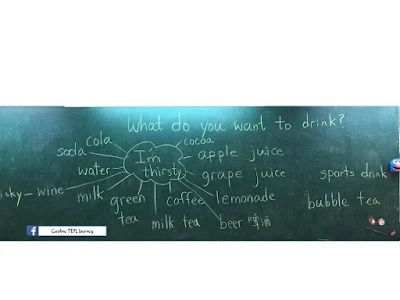 What do you want to drink?
cola
cocoa
soda
I'm thirsty
apple juice
water
grape juice
sports drink
wine
milk
green tea
coffee
lemonade
bubble tea
milk tea
beer 啤酒
TEFL Journey